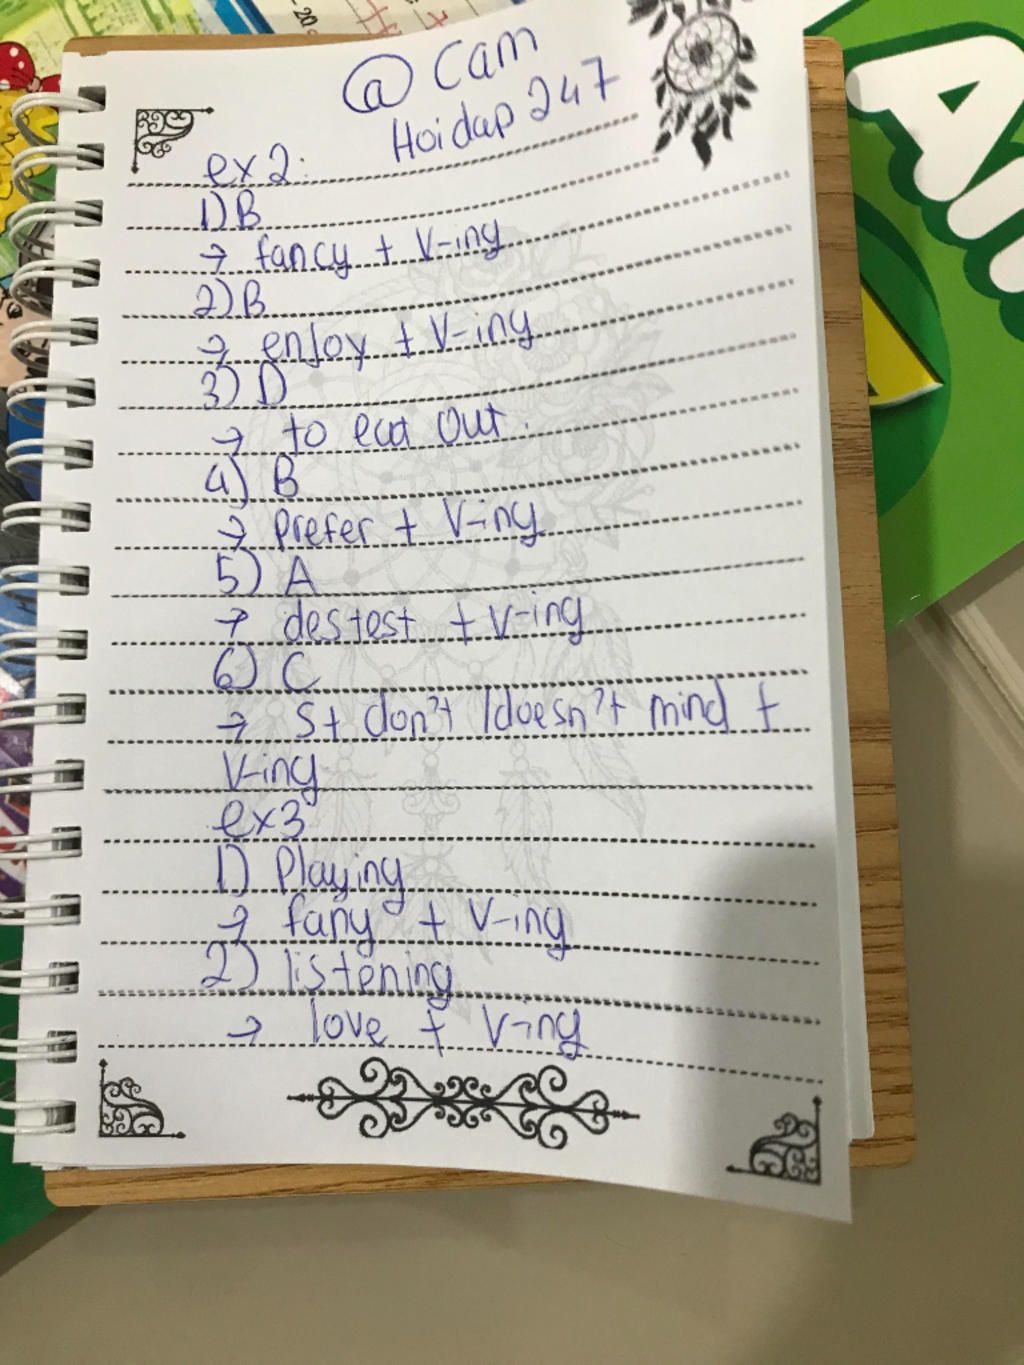 @ Cam
Hoidap 247
ex2:
1) B
→ fancy + V-ing
2) B
→ enjoy + V-ing
3) D
→ to eat out.
4) B
→ prefer + V-ing
5) A
→ destest + V-ing
6) C
→ St don't /doesn't mind +
V-ing
ex3
1) Playing
→ fany + V-ing
2) listening
→ love + V-ing